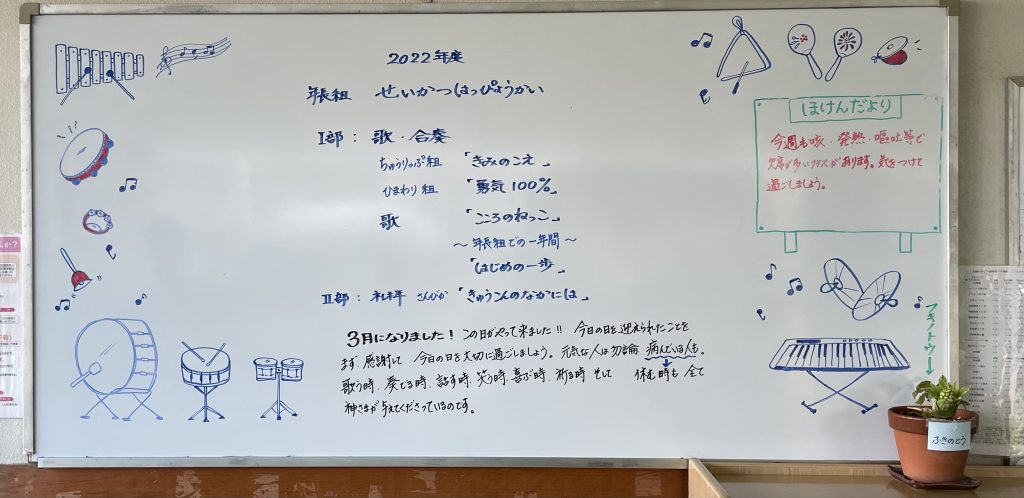 2022年度
年長組 せいかつはっぴょうかい
I部: 歌・合奏
ちゅうりっぷ組 「きみのこえ」
ひまわり組 「勇気100%」
歌 「こころのねっこ」
～年長組での一年間～
「はじめの一歩」
II部: 礼拝 さんびか 「きゅうこんのなかには」
3月になりました! この日がやって来ました!! 今日の日を迎えられたことを
まず感謝して 今日の日を大切に過ごしましょう。元気な人は勿論 病んでいる人も。
歌う時、奏でる時、話す時、笑う時、喜ぶ時、祈る時 そして 休む時も 全て
神さまが与えてくださっているのです。
ほけんだより
今週も咳・発熱・嘔吐等で
欠席が多いクラスがあります。気をつけて
過ごしましょう。
フキノトウ→
ふきのとう
んか?